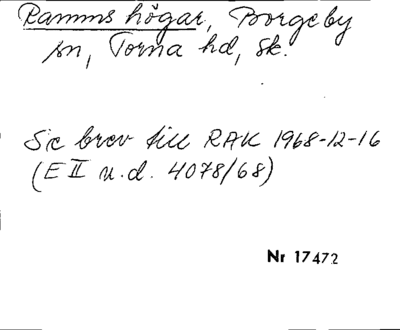 Ramms högar, Borgeby
sn, Torna hd, Sk.
Se brev till RAK 1968-12-16
(E II u.d. 4078/68)
Nr 17472